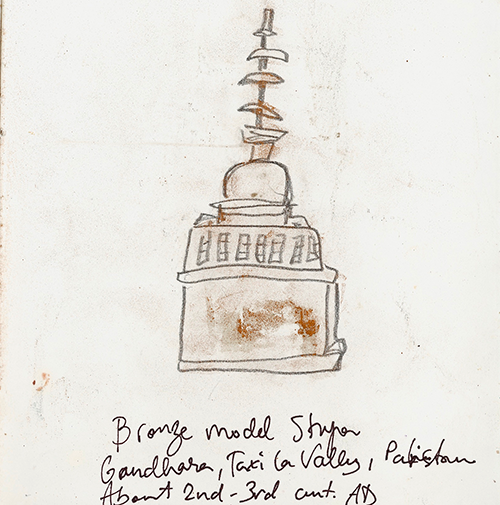 Bronze model Stupa
Gandhara, Taxila Valley, Pakistan
About 2nd-3rd cent. AD